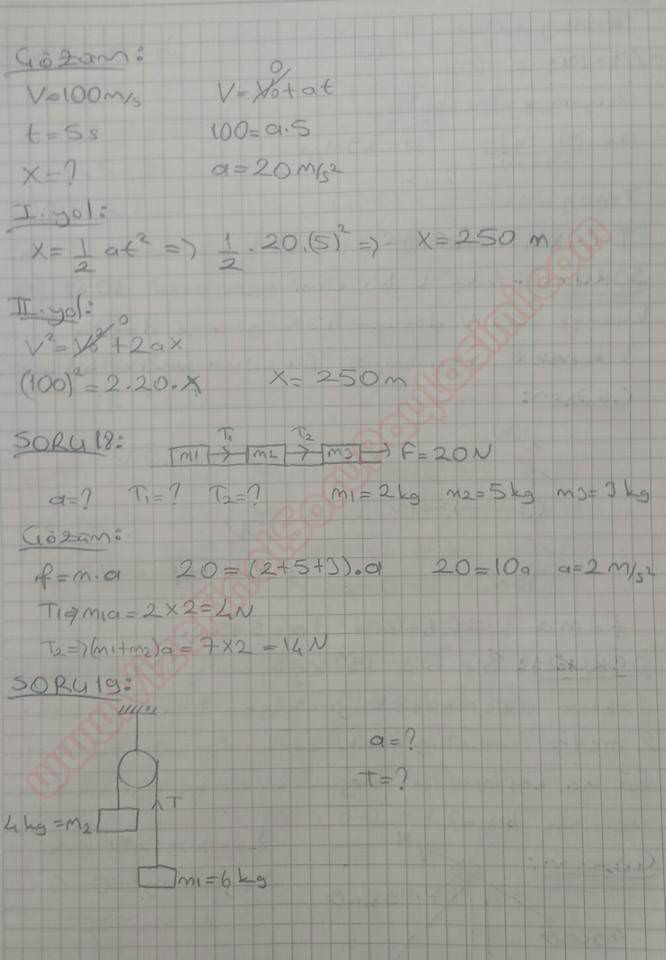 Çözüm:
V=100m/s V=V₀+at 0
t=5s 100=a.5
x=? a=20m/s²
I.yol:
x=1/2 at² => 1/2 . 20.(5)² => x=250 m
II.yol:
V²=V₀²+2ax 0
(100)²=2.20.x x=250m
SORU 18: m1 T1 m2 T2 m3 F=20N
a=? T1=? T2=? m1=2kg m2=5kg m3=3kg
Çözüm:
f=m.a 20=(2+5+3).a 20=10a a=2m/s²
T1=>m1a=2x2=4N
T2=>(m1+m2)a=7x2=14N
SORU 19:
a=?
T=?
T
4kg=m2
m1=6kg